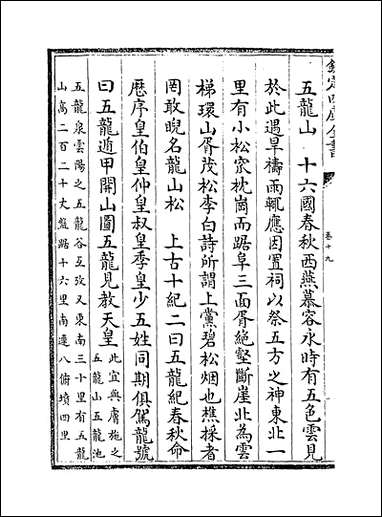 欽定四庫全書
卷十九
五龍山　十六國春秋西燕慕容永時有五色雲見
於此遇旱禱雨輒應因置祠以祭五方之神東北一
里有小松冢枕崗而踞阜三面胥絕壑斷崖北為雲
梯環山胥茂松李白詩所謂上黨碧松烟也樵採者
罔敢睨名龍山松　上古十紀二曰五龍紀春秋命
厯序皇伯皇仲皇叔皇季皇少五姓同期俱駕龍號
曰五龍遁甲開山圖五龍見教天皇此宜與膚施之
五龍山五龍池
五龍泉雲陽之五龍谷互攷又東南三十里有五龍
山高二百二十丈盤踞十六里南連八備墳四里